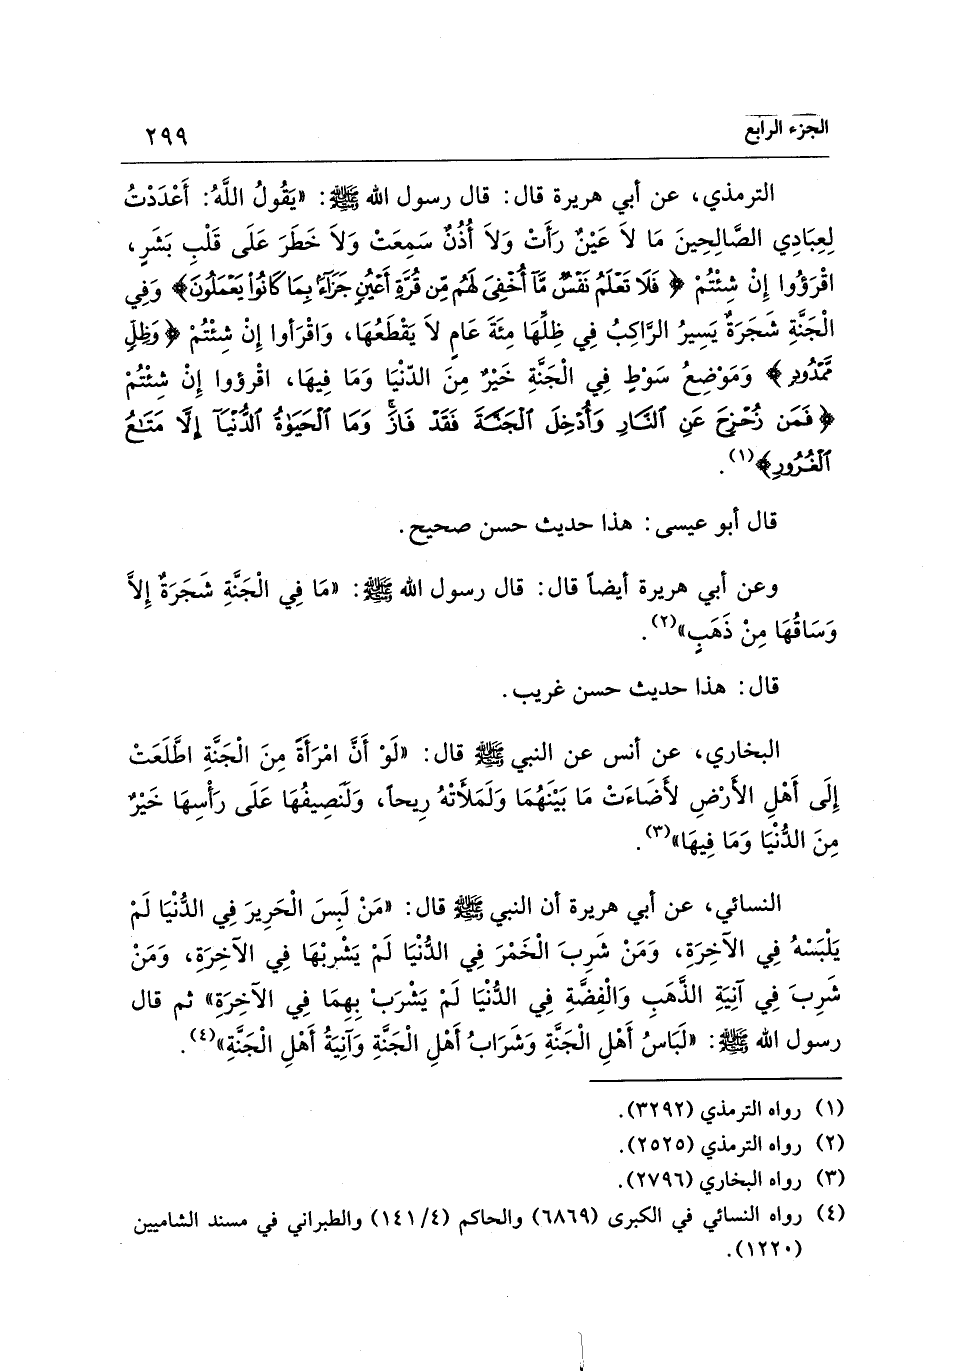 الجزء الرابع
٢٩٩
الترمذي، عن أبي هريرة قال: قال رسول الله ﷺ: «يَقُولُ اللَّهُ: أَعْدَدْتُ
لِعِبَادِي الصَّالِحِينَ مَا لاَ عَيْنٌ رَأَتْ وَلاَ أُذُنٌ سَمِعَتْ وَلاَ خَطَرَ عَلَى قَلْبِ بَشَرٍ،
اقْرَؤُوا إِنْ شِئْتُمْ ﴿فَلَا تَعْلَمُ نَفْسٌ مَّآ أُخْفِىَ لَهُم مِّن قُرَّةِ أَعْيُنٍ جَزَآءًۢ بِمَا كَانُوا۟ يَعْمَلُونَ﴾ وَفِي
الْجَنَّةِ شَجَرَةٌ يَسِيرُ الرَّاكِبُ فِي ظِلِّهَا مِئَةَ عَامٍ لاَ يَقْطَعُهَا، وَاقْرَأوا إِنْ شِئْتُمْ ﴿وَظِلٍّ
مَّمْدُودٍ﴾ وَمَوْضِعُ سَوْطٍ فِي الْجَنَّةِ خَيْرٌ مِنَ الدّنْيَا وَمَا فِيهَا، اقْرؤوا إِنْ شِئْتُمْ
﴿فَمَن زُحْزِحَ عَنِ ٱلنَّارِ وَأُدْخِلَ ٱلْجَنَّةَ فَقَدْ فَازَ ۗ وَمَا ٱلْحَيَوٰةُ ٱلدُّنْيَآ إِلَّا مَتَـٰعُ
ٱلْغُرُورِ﴾(١).
قال أبو عيسى: هذا حديث حسن صحيح.
وعن أبي هريرة أيضاً قال: قال رسول الله ﷺ: «مَا فِي الْجَنَّةِ شَجَرَةٌ إِلاَّ
وَسَاقُهَا مِنْ ذَهَبٍ»(٢).
قال: هذا حديث حسن غريب.
البخاري، عن أنس عن النبي ﷺ قال: «لَوْ أَنَّ امْرَأَةً مِنَ الْجَنَّةِ اطَّلَعَتْ
إِلَى أَهْلِ الأَرْضِ لأَضَاءَتْ مَا بَيْنَهُمَا وَلَمَلأَتْهُ رِيحاً، وَلَنَصِيفُهَا عَلَى رَأْسِهَا خَيْرٌ
مِنَ الدُّنْيَا وَمَا فِيهَا»(٣).
النسائي، عن أبي هريرة أن النبي ﷺ قال: «مَنْ لَبِسَ الْحَرِيرَ فِي الدُّنْيَا لَمْ
يَلْبَسْهُ فِي الآخِرَةِ، وَمَنْ شَرِبَ الْخَمْرَ فِي الدُّنْيَا لَمْ يَشْرِبْهَا فِي الآخِرَةِ، وَمَنْ
شَرِبَ فِي آنِيَةِ الذَّهَبِ وَالْفِضَّةِ فِي الدُّنْيَا لَمْ يَشْرَبْ بِهِمَا فِي الآخِرَةِ» ثم قال
رسول الله ﷺ: «لَبَاسُ أَهْلِ الْجَنَّةِ وَشَرَابُ أَهْلِ الْجَنَّةِ وَآنِيَةُ أَهْلِ الْجَنَّةِ»(٤).
(١) رواه الترمذي (٣٢٩٢).
(٢) رواه الترمذي (٢٥٢٥).
(٣) رواه البخاري (٢٧٩٦).
(٤) رواه النسائي في الكبرى (٦٨٦٩) والحاكم (١٤١/٤) والطبراني في مسند الشاميين
(١٢٢٠).